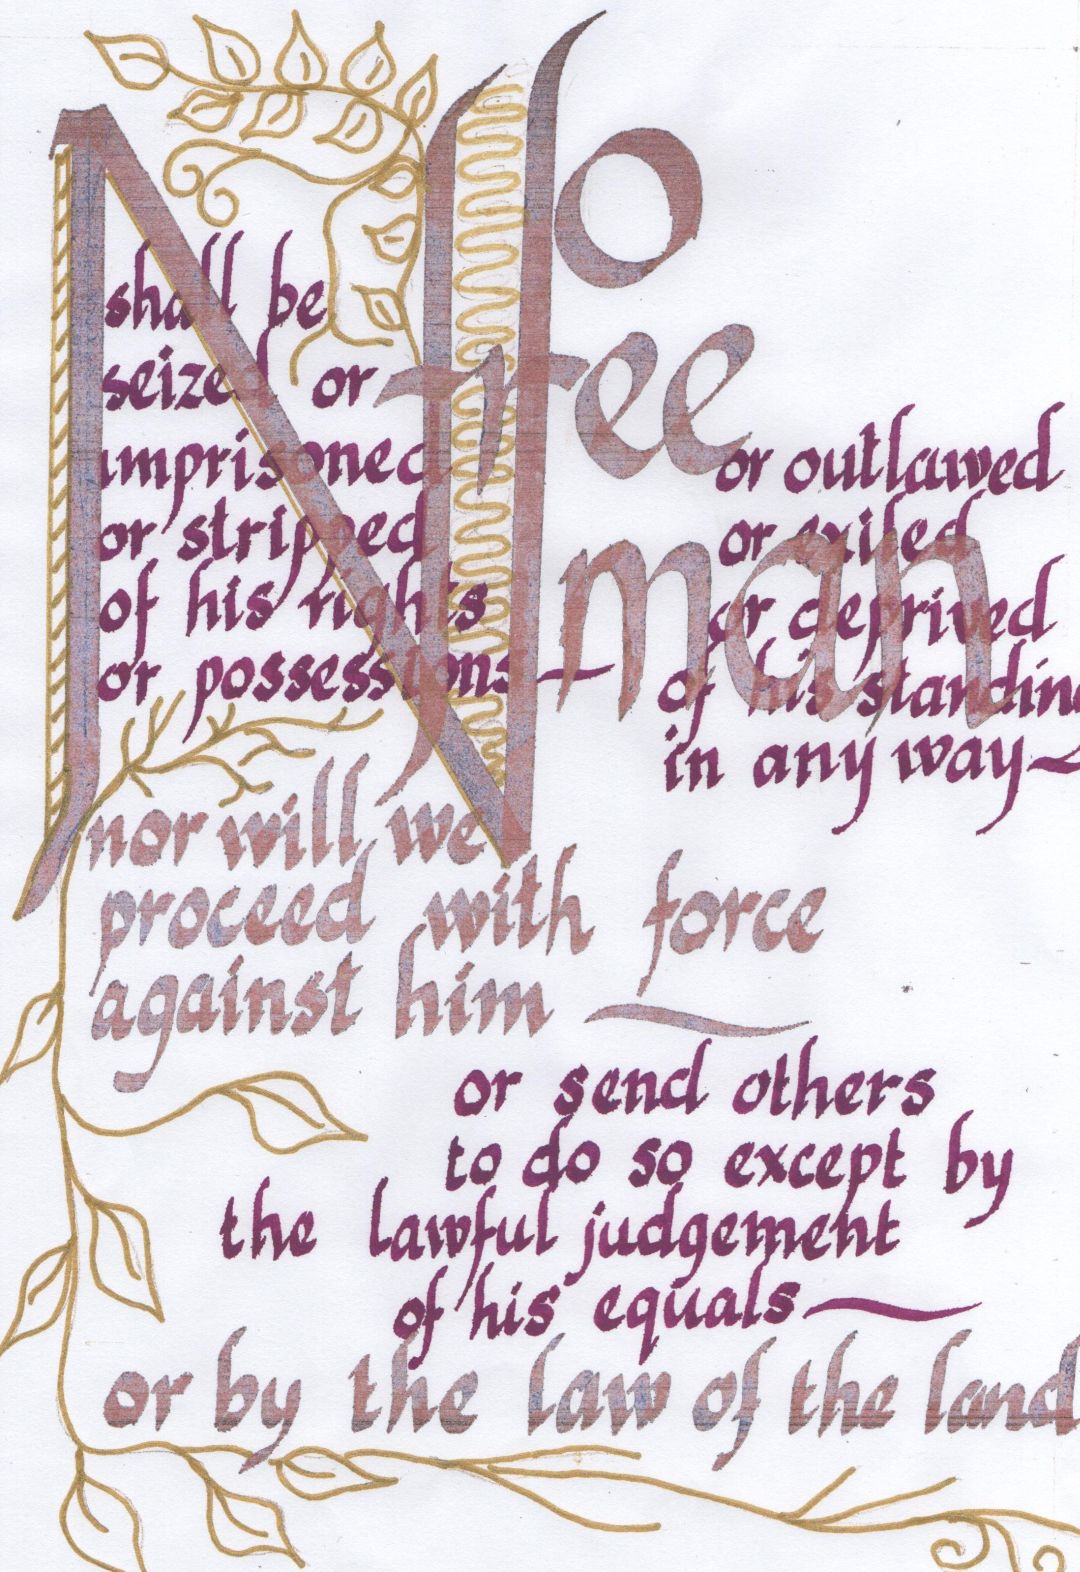 No
free
man
shall be
seized or
imprisoned
or stripped
of his rights
or possessions
or outlawed
or exiled
or deprived
of his standing
in any way
nor will we
proceed with force
against him
or send others
to do so except by
the lawful judgement
of his equals
or by the law of the land